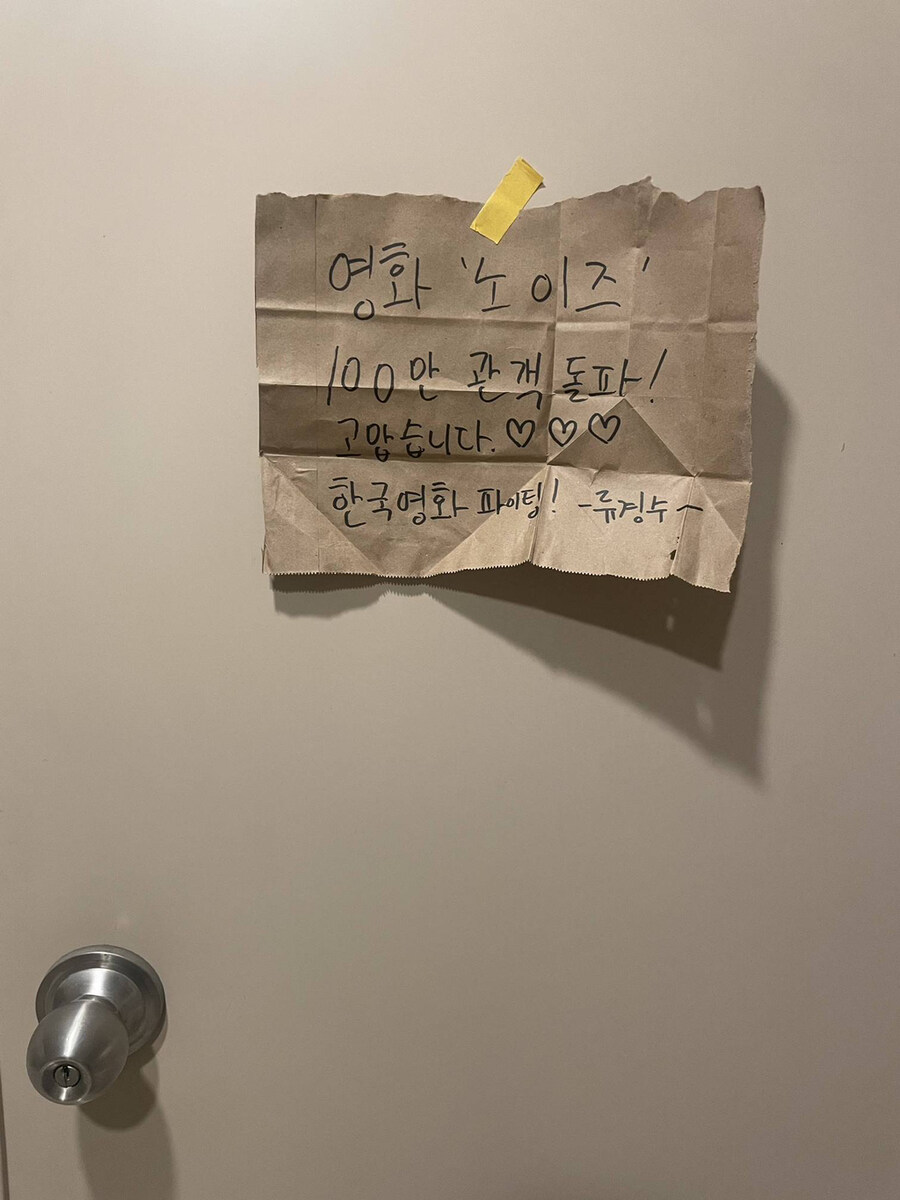 영화 '노이즈'
100만 관객 돌파!
고맙습니다.♡♡♡
한국영화 파이팅! -류경수-